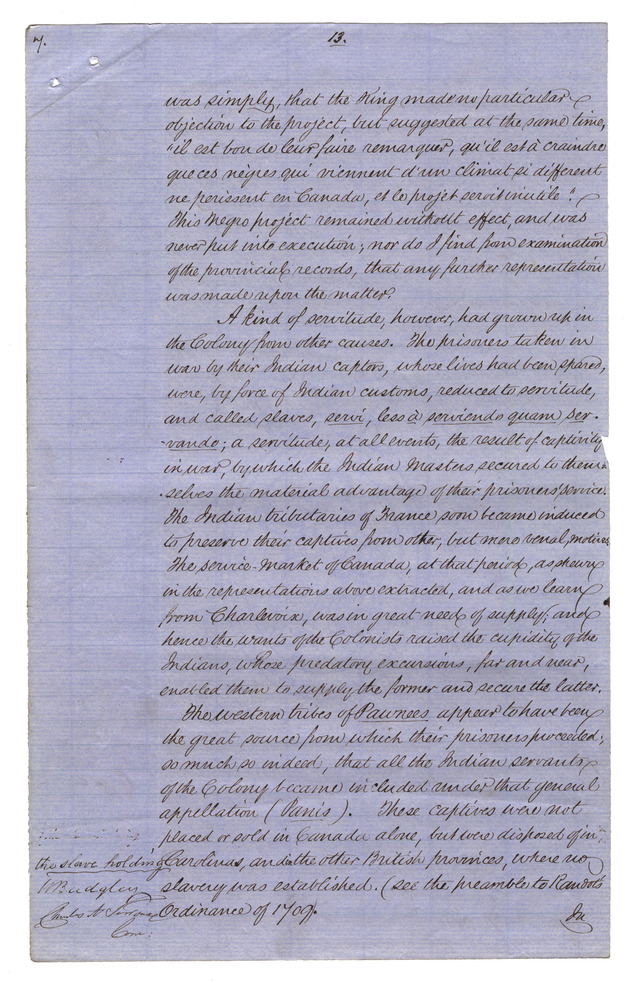 7.
13.
was simply, that the King made no particular
objection to the project, but suggested at the same time,
"il est bon de leur faire remarquer, qu'il est à craindre
que ces nègres qui viennent d'un climat si different
ne perissent en Canada, et le projet seroit inutile".
This Negro project remained without effect, and was
never put into execution; nor do I find from examination
of the provincial records, that any further representation
was made upon the matter.
A kind of servitude, however, had grown up in
the Colony from other causes. The prisoners taken in
war by their Indian captors, whose lives had been spared,
were, by force of Indian customs, reduced to servitude,
and called slaves, servi, less à serviendo quam ser-
-vando; a servitude, at all events, the result of captivity
in war, by which the Indian Masters secured to them-
-selves the material advantage of their prisoners' service.
The Indian tributaries of France soon became induced
to preserve their captives from other, but more venal, motives.
The service-market of Canada, at that period, as shewn
in the representations above extracted, and as we learn
from Charlevoix, was in great need of supply; and
hence the wants of the Colonists raised the cupidity of the
Indians, whose predatory excursions, far and near,
enabled them to supply the former and secure the latter.
The western tribes of Pawnees appear to have been
the great source from which their prisoners proceeded;
so much so indeed, that all the Indian servants
of the Colony became included under that general
appellation (Panis). These captives were not
placed or sold in Canada alone, but were disposed of in
the slave holding Carolinas, and the other British provinces, where no
W Badgley
slavery was established. (see the preamble to Raudots
Ordinance of 1709.
In